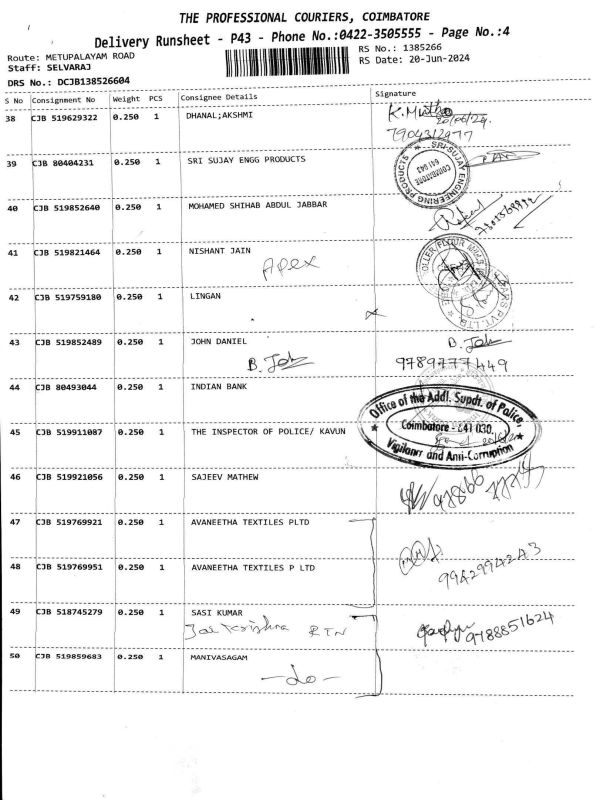 THE PROFESSIONAL COURIERS, COIMBATORE
Delivery Runsheet - P43 - Phone No.:0422-3505555 - Page No.:4
Route: METUPALAYAM ROAD
RS No.: 1385266
Staff: SELVARAJ
RS Date: 20-Jun-2024
DRS No.: DCJB138526604
S No Consignment No Weight PCS Consignee Details Signature
38 CJB 519629322 0.250 1 DHANAL;AKSHMI
20/06/24.
39 CJB 80404231 0.250 1 SRI SUJAY ENGG PRODUCTS
SRI-SUJAY ENGINEERING PRODUCTS
COIMBATORE
641 043
40 CJB 519852640 0.250 1 MOHAMED SHIHAB ABDUL JABBAR
41 CJB 519821464 0.250 1 NISHANT JAIN
Apex
42 CJB 519759180 0.250 1 LINGAN
43 CJB 519852489 0.250 1 JOHN DANIEL
B. Joh
B. Joh
9789777449
44 CJB 80493044 0.250 1 INDIAN BANK
Office of the Addl. Supdt. of Police,
Coimbatore - 641 030
Vigilance and Anti-Corruption
45 CJB 519911087 0.250 1 THE INSPECTOR OF POLICE/ KAVUN
46 CJB 519921056 0.250 1 SAJEEV MATHEW
47 CJB 519769921 0.250 1 AVANEETHA TEXTILES PLTD
48 CJB 519769951 0.250 1 AVANEETHA TEXTILES P LTD
9942994243
49 CJB 518745279 0.250 1 SASI KUMAR
Jai Krishna RTN
9788851624
50 CJB 519859683 0.250 1 MANIVASAGAM
-do-